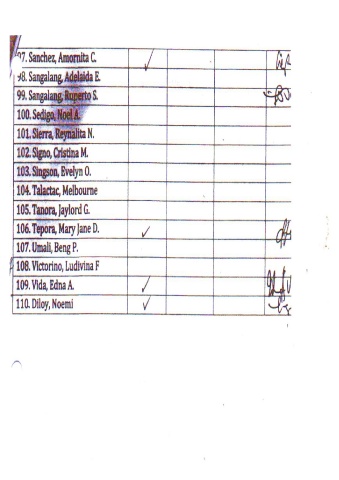 97. Sanchez, Amornita C.
98. Sangalang, Adelaida E.
99. Sangalang, Ruperto S.
100. Sedigo, Noel A.
101. Sierra, Reynalita N.
102. Signo, Cristina M.
103. Singson, Evelyn O.
104. Talactac, Melbourne
105. Tanora, Jaylord G.
106. Tepora, Mary Jane D.
107. Umali, Beng P.
108. Victorino, Ludivina F
109. Vida, Edna A.
110. Diloy, Noemi